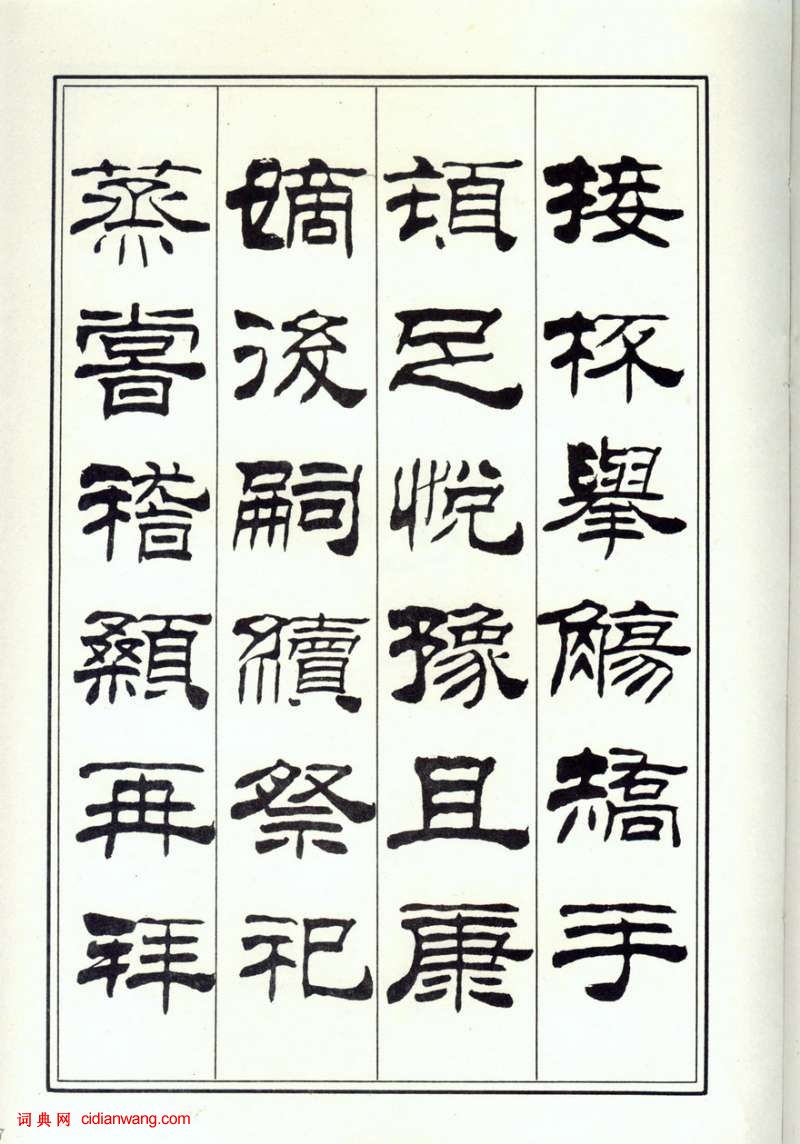 接杯舉觴矯手
頓足悅豫且康
嫡後嗣續祭祀
蒸嘗稽顙再拜
词典网 cidianwang.com